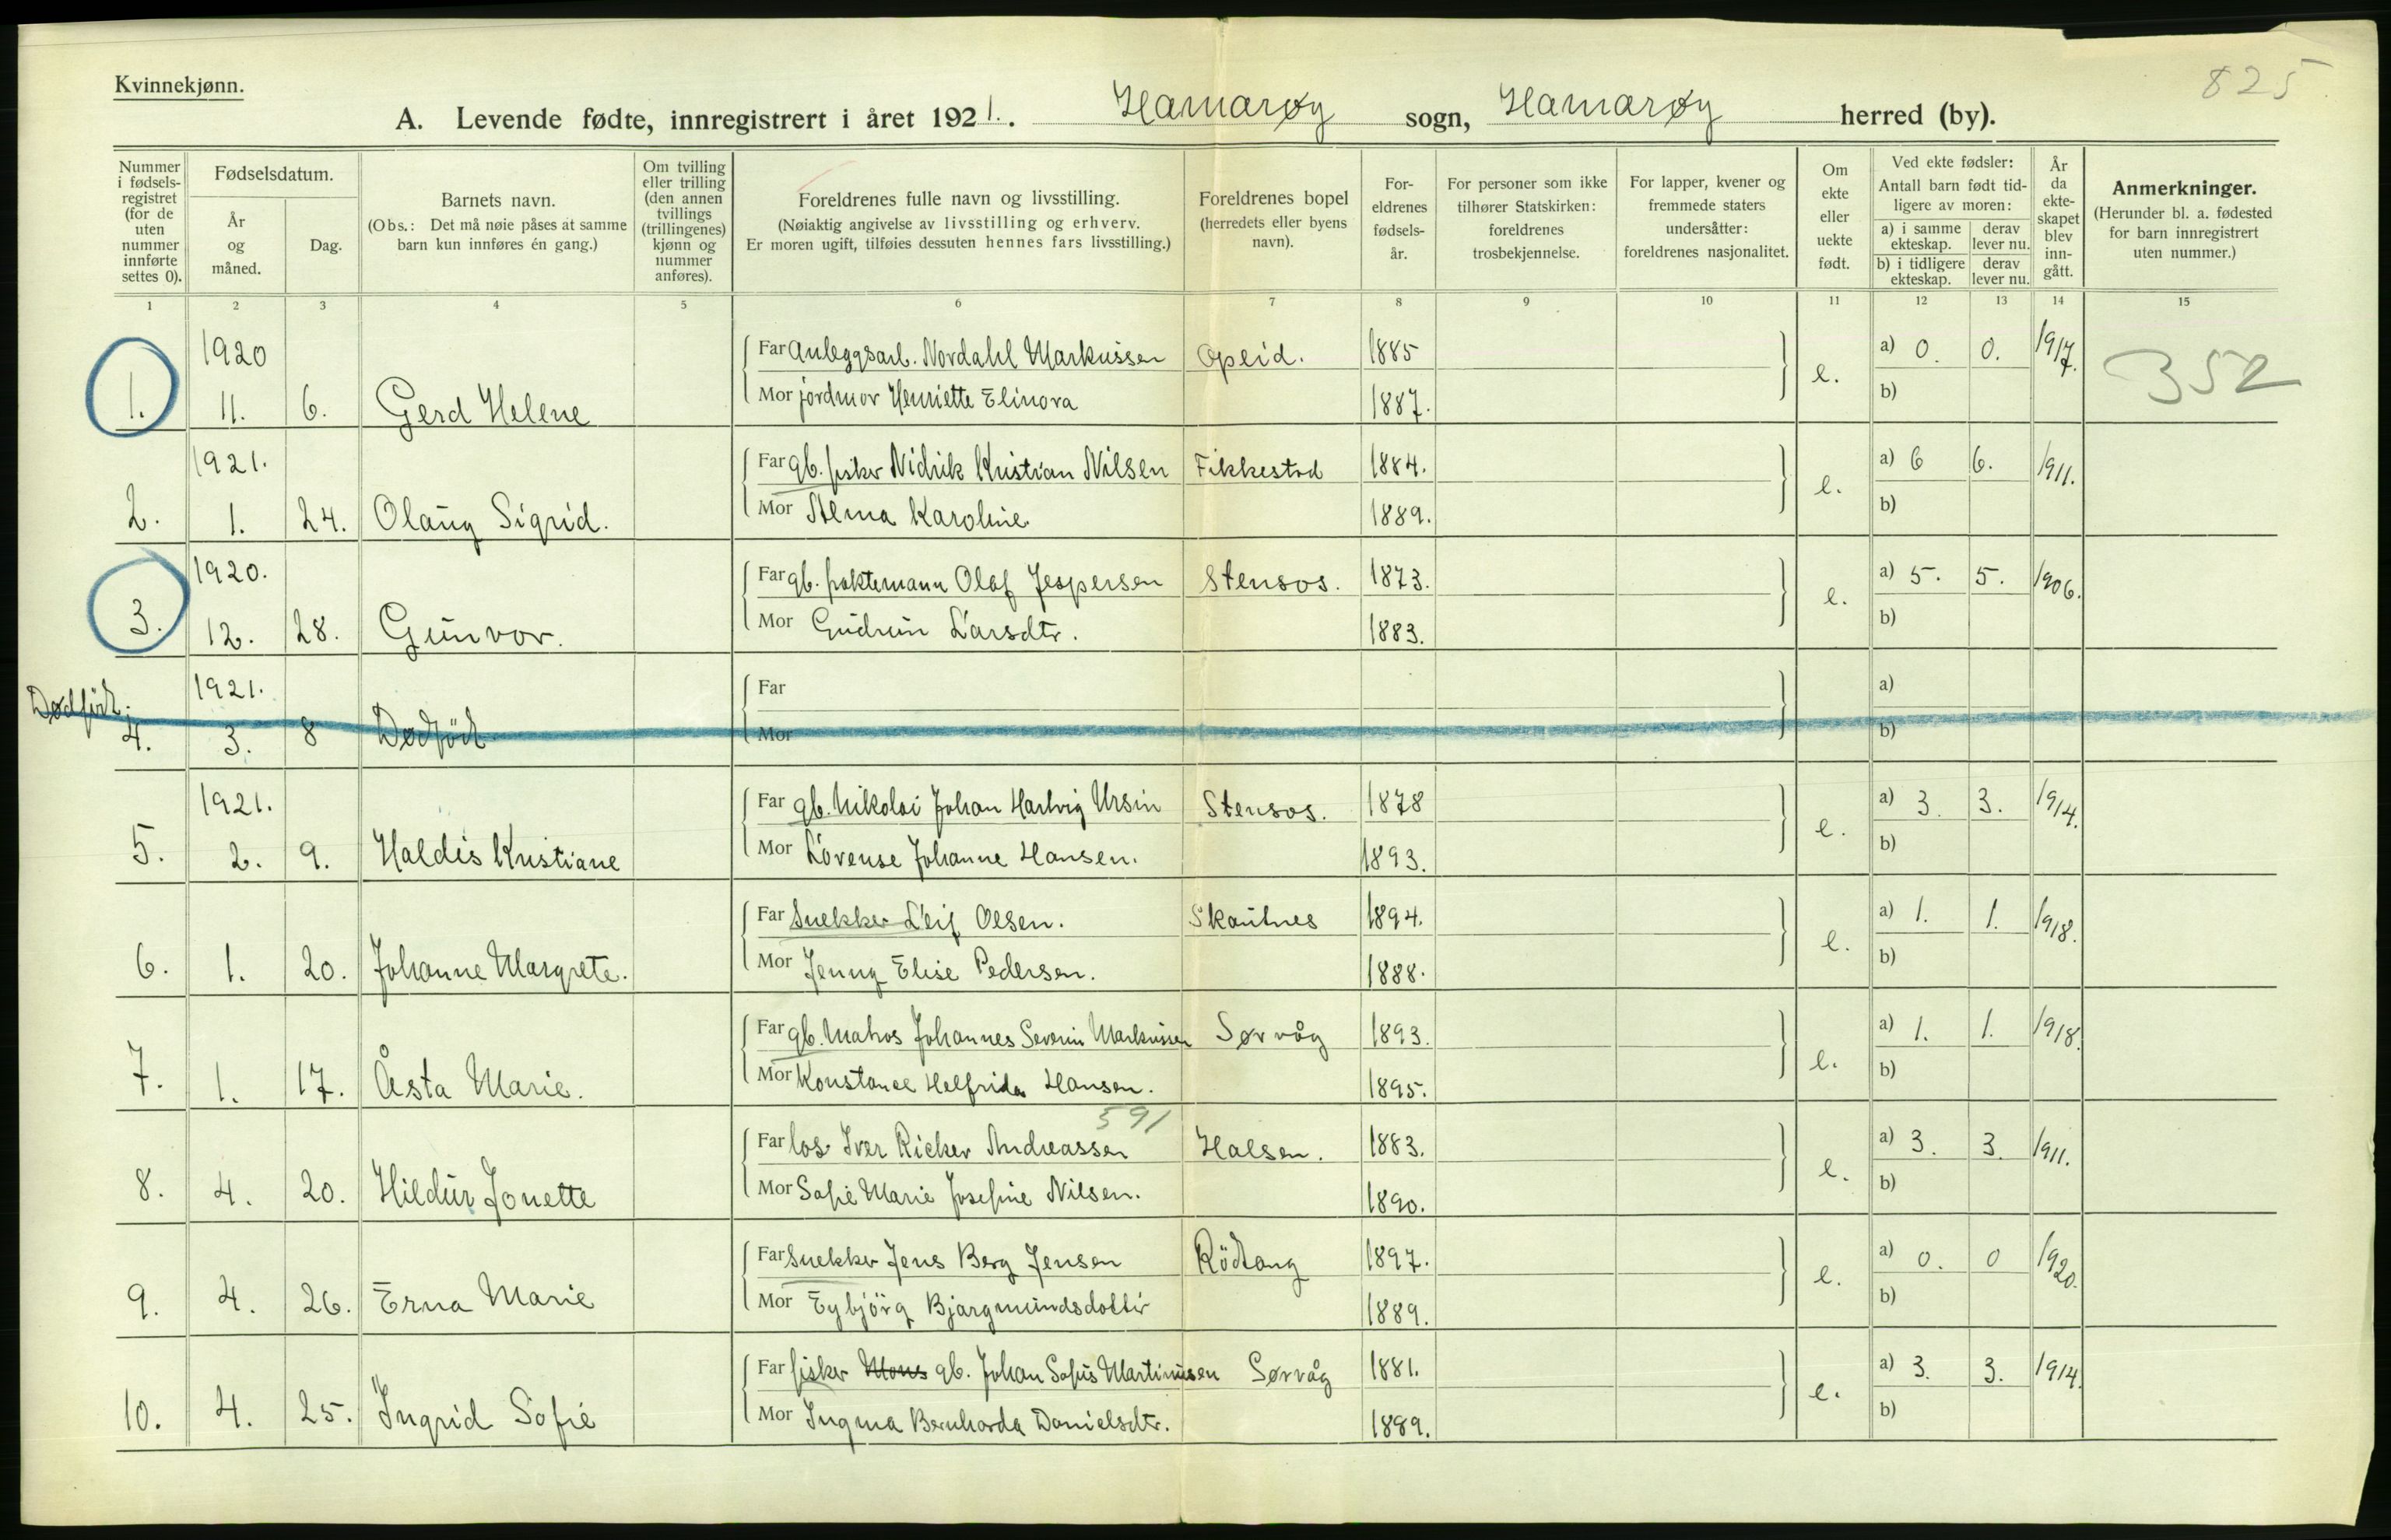 825
Kvinnekjønn.
A. Levende fødte, innregistrert i året 1921. Hamarøy sogn, Hamarøy herred (by).
Nummer i fødsels-registret (for de uten nummer innførte settes 0).
Fødselsdatum.
År og måned.
Dag.
Barnets navn.
(Obs.: Det må nøie påses at samme barn kun innføres én gang.)
Om tvilling eller trilling (den annen tvillings (trillingenes) kjønn og nummer anføres).
Foreldrenes fulle navn og livsstilling.
(Nøiaktig angivelse av livsstilling og erhverv. Er moren ugift, tilføies dessuten hennes fars livsstilling.)
Foreldrenes bopel (herredets eller byens navn).
For-eldrenes fødsels-år.
For personer som ikke tilhører Statskirken: foreldrenes trosbekjennelse.
For lapper, kvener og fremmede staters undersåtter: foreldrenes nasjonalitet.
Om ekte eller uekte født.
Ved ekte fødsler:
Antall barn født tid-ligere av moren:
a) i samme ekteskap.
derav lever nu.
b) i tidligere ekteskap.
derav lever nu.
År da ekte-skapet blev inn-gått.
Anmerkninger.
(Herunder bl. a. fødested for barn innregistrert uten nummer.)
1 2 3 4 5 6 7 8 9 10 11 12 13 14 15
1920 Far Anleggsarb. Nordahl Markussen Opeid. 1885 a) 0. 0. 1917. 352
1. 11. 6. Gerd Helene Mor jordmor Henriette Elinora 1887. e. b)
1921. Far gb. fisker Nidrik Kristian Nilsen Fikkestad 1884. a) 6 6. 1911.
2. 1. 24. Olaug Sigrid. Mor Alma Karoline 1889. e. b)
1920. Far gb. fraktemann Olaf Jespersen Stensos. 1873. a) 5. 5. 1906.
3. 12. 28. Gunvor. Mor Gudrun Larsdtr. 1883. e. b)
Dødfødt. 1921. Far a)
4. 3. 8 Dødfødt Mor b)
1921. Far gb. Nikolai Johan Hartvig Ursin Stensos. 1878 a) 3. 3. 1914.
5. 2. 9. Haldis Kristiane Mor Lovense Johanne Hansen. 1893. e. b)
Far Snekker Leif Olsen. Skautnes 1894. a) 1. 1. 1918.
6. 1. 20. Johanne Margrete. Mor Jenny Elise Pedersen. 1888. e. b)
Far gb. Matros Johannes Severin Markussen Sørvåg 1893. a) 1. 1. 1918.
7. 1. 17. Åsta Marie. Mor Konstance Helfrida Hansen. 1895. e. b)
591
Far los Iver Ricker Andreassen Halsen. 1883. a) 3. 3. 1911.
8. 4. 20. Hildur Jonette Mor Sofie Marie Josefine Nilsen. 1890. e. b)
Far Snekker Jens Berg Jensen Rödtang 1897. a) 0. 0 1920.
9. 4. 26. Erna Marie Mor Eybjörg Bjargmundsdottir 1889. e. b)
Far fisker gb. Johan Sofus Martinussen Sørvåg 1881. a) 3. 3. 1914.
10. 4. 25. Ingrid Sofie Mor Ingma Bernharda Danielsdtr. 1889. e. b)